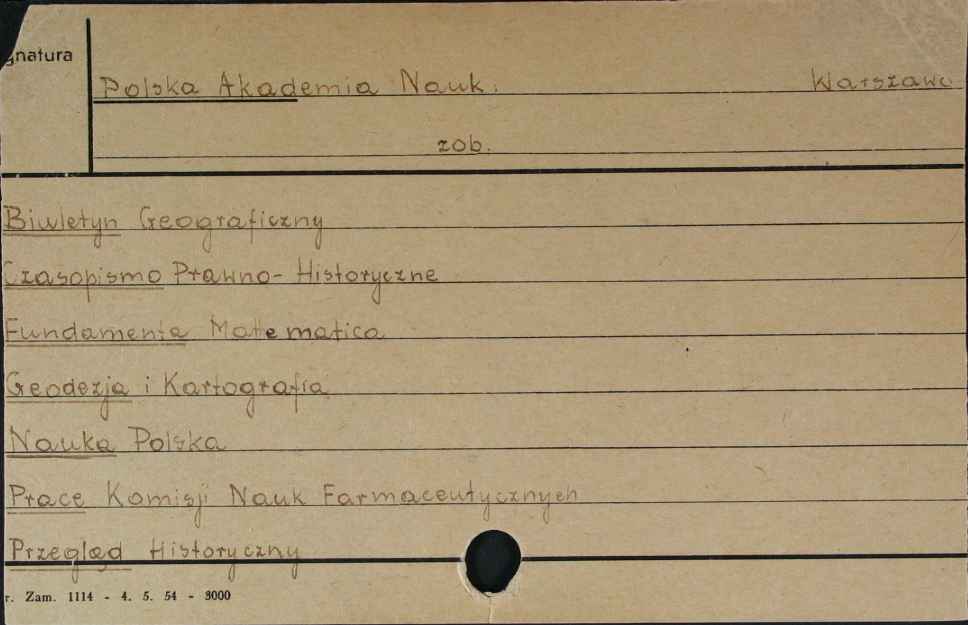 gnatura
Polska Akademia Nauk. Warszawa
zob.
Biuletyn Geograficzny
Czasopismo Prawno-Historyczne
Fundamenta Matematica
Geodezja i Kartografia
Nauka Polska
Prace Komisji Nauk Farmaceutycznych
Przegląd Historyczny
r. Zam. 1114 - 4. 5. 54 - 3000